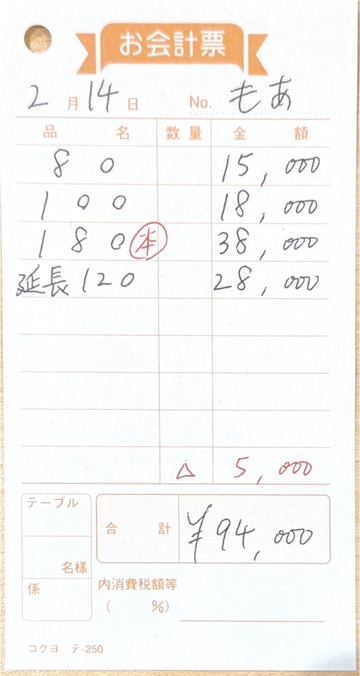 お会計票
2月14日 No. もあ
品名 数量 金額
80 15,000
100 18,000
180 本 38,000
延長120 28,000
△ 5,000
テーブル
名様
係
合計 ¥94,000
内消費税額等
( %)
コクヨ テ-250